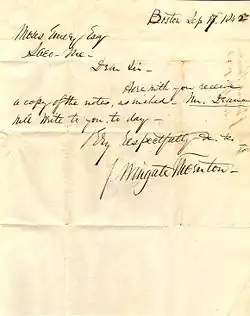 Boston Sep 17. 1842
Moses Emery Esq
Saco - Me -
Dear Sir -
Herewith you receive
a copy of the notes, as wished - Mr. Deane
will write to you to day -
Very Respectfully &c. &c
J. Wingate Thornton -